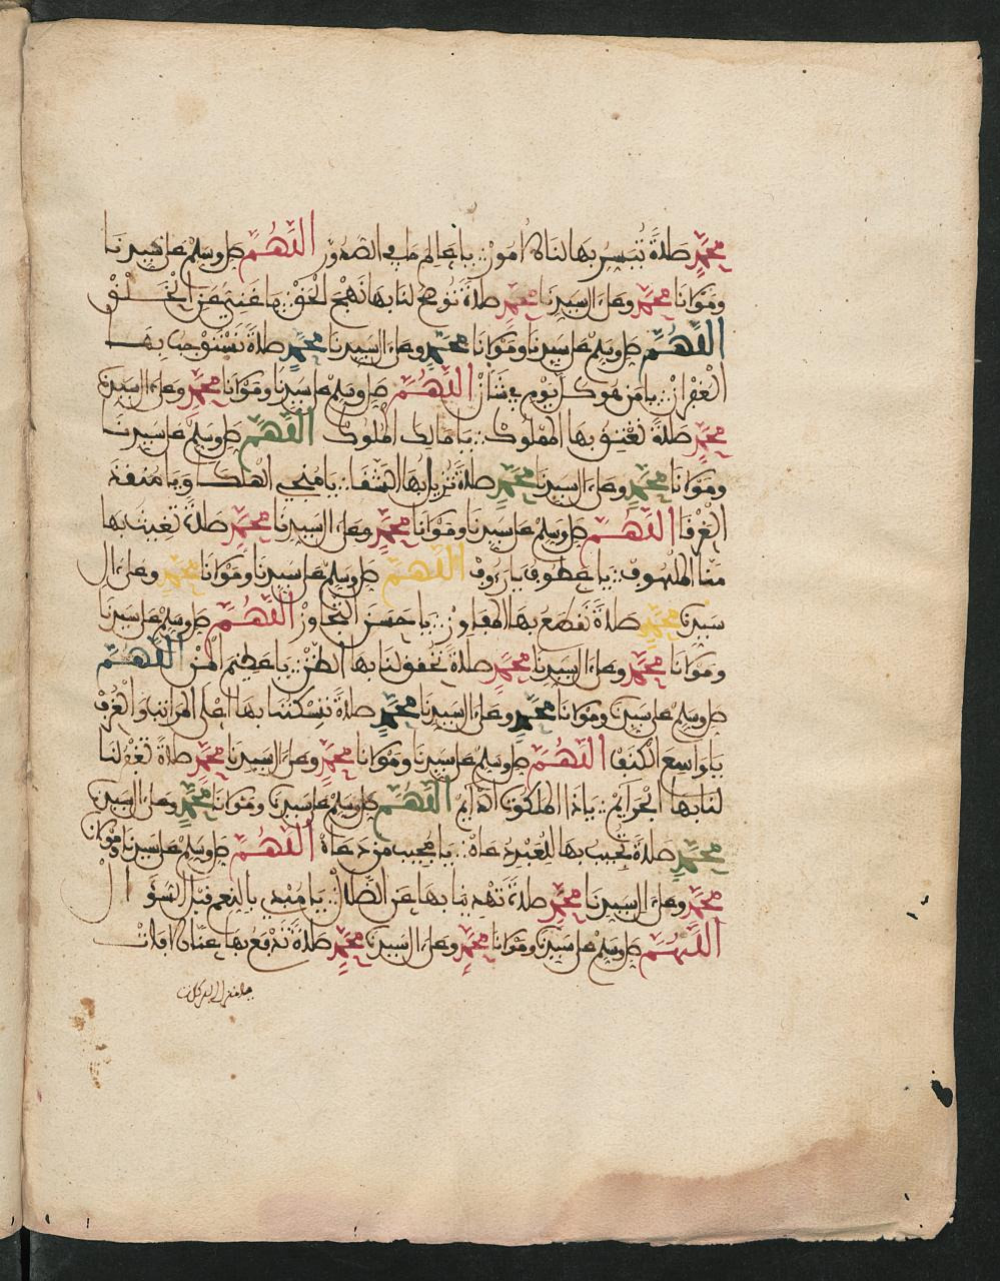 محمد صلاة تيسر بها لنا الامور ∴ يا عالم ما في الصدور اللهم صل وسلم على سيدنا
ومولانا محمد وعلى ال سيدنا محمد صلاة توضح لنا بها نهج الحق ∴ يا غني عن الخلق
اللهم صل وسلم على سيدنا ومولانا محمد وعلى ال سيدنا محمد صلاة نستوجب بها
الغفران ∴ يا من هو كل يوم في شان اللهم صل وسلم على سيدنا ومولانا محمد وعلى ال سيدنا
محمد صلاة تعتق بها المملوك ∴ يا مالك الملوك اللهم صل وسلم على سيدنا
ومولانا محمد وعلى ال سيدنا محمد صلاة تزيل بها الشقا ∴ يا منجي الهلكا ويا منقذ
الغرقا اللهم صل وسلم على سيدنا ومولانا محمد وعلى ال سيدنا محمد صلاة تغيث بها
منا الملهوف ∴ يا عطوف يا رءوف اللهم صل وسلم على سيدنا ومولانا محمد وعلى ال
سيدنا محمد صلاة نقطع بها المفاوز ∴ يا حسن التجاوز اللهم صل وسلم على سيدنا
ومولانا محمد وعلى ال سيدنا محمد صلاة تحقق لنا بها الظن ∴ يا عظيم المن اللهم
صل وسلم على سيدنا ومولانا محمد وعلى ال سيدنا محمد صلاة تسكننا بها اعلى المراتب والغرف
يا واسع الكنف اللهم صل وسلم على سيدنا ومولانا محمد وعلى ال سيدنا محمد صلاة تغفر لنا
لنا بها الجرايم ∴ يا ذا الملكوت الدايم اللهم صل وسلم على سيدنا ومولانا محمد وعلى ال سيدنا
محمد صلاة تجيب بها للعبد دعاه ∴ يا مجيب من دعاه اللهم صل وسلم على سيدنا ومولانا
محمد وعلى ال سيدنا محمد صلاة تهدينا بها عن الضلال ∴ يا مبتدي بالنعم قبل السؤال
اللهم صل وسلم على سيدنا ومولانا محمد وعلى ال سيدنا محمد صلاة تدفع بها عنا الافات